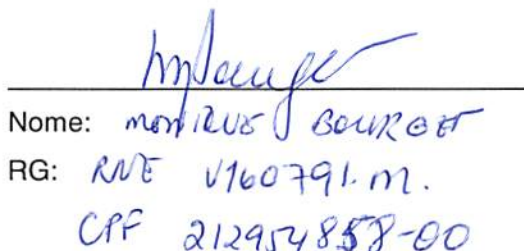 Nome: MONIQUE BOURGET
RG: RNE V160791.M.
CPF 212954858-00